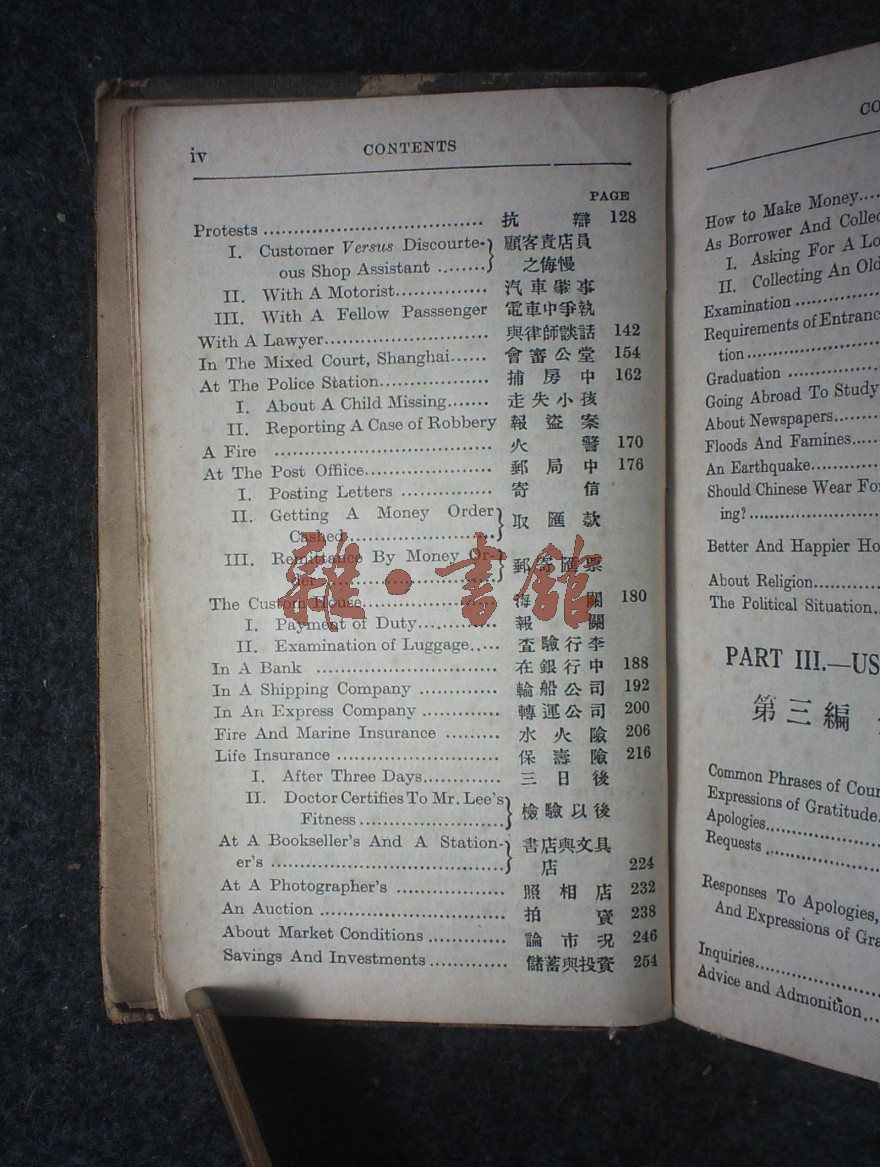 iv CONTENTS
PAGE
Protests 抗 辯 128
I. Customer Versus Discourte-
ous Shop Assistant
顧客責店員
之侮慢
II. With A Motorist 汽車肇事
III. With A Fellow Passsenger 電車中爭執
With A Lawyer 與律師談話 142
In The Mixed Court, Shanghai 會審公堂 154
At The Police Station 捕房中 162
I. About A Child Missing 走失小孩
II. Reporting A Case of Robbery 報盜案
A Fire 火 警 170
At The Post Offiice 郵局中 176
I. Posting Letters 寄 信
II. Getting A Money Order
Cashed
取匯款
III. Remittance By Money Or-
der
郵寄匯票
The Custom House 海 關 180
I. Payment of Duty 報 關
II. Examination of Luggage 查驗行李
In A Bank 在銀行中 188
In A Shipping Company 輪船公司 192
In An Express Company 轉運公司 200
Fire And Marine Insurance 水火險 206
Life Insurance 保壽險 216
I. After Three Days 三日後
II. Doctor Certifies To Mr. Lee's
Fitness
檢驗以後
At A Bookseller's And A Station-
er's
書店與文具
店 224
At A Photographer's 照相店 232
An Auction 拍 賣 238
About Market Conditions 論市況 246
Savings And Investments 儲蓄與投資 254
雜·書館
CO
How to Make Money
As Borrower And Collec
I. Asking For A Lo
II. Collecting An Old
Examination
Requirements of Entranc
tion
Graduation
Going Abroad To Study
About Newspapers
Floods And Famines
An Earthquake
Should Chinese Wear Fo
ing?
Better And Happier Ho
About Religion
The Political Situation
PART III.—US
第三編
Common Phrases of Cour
Expressions of Gratitude
Apologies
Requests
Responses To Apologies,
And Expressions of Gra
Inquiries
Advice and Admonition